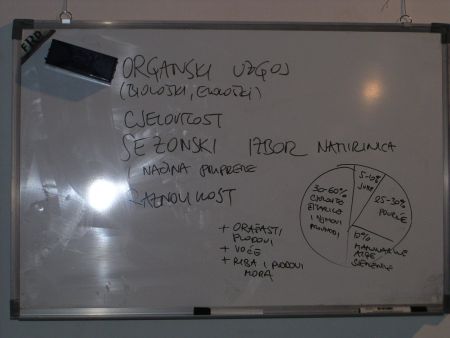 ORGANSKI UZGOJ
(BIOLOŠKI, EKOLOŠKI)
CJELOVITOST
SEZONSKI IZBOR NAMIRNICA
I NAČINA PRIPREME
RAZNOLIKOST
5-10%
JUHE
30-60%
CJELOVITE
ŽITARICE
I NJIHOVI
PROIZVODI
25-30%
POVRĆE
10%
MAHUNARKE
ALGE/
SJEMENJE
+ ORAŠASTI
PLODOVI
+ VOĆE
+ RIBA I PLODOVI
MORA